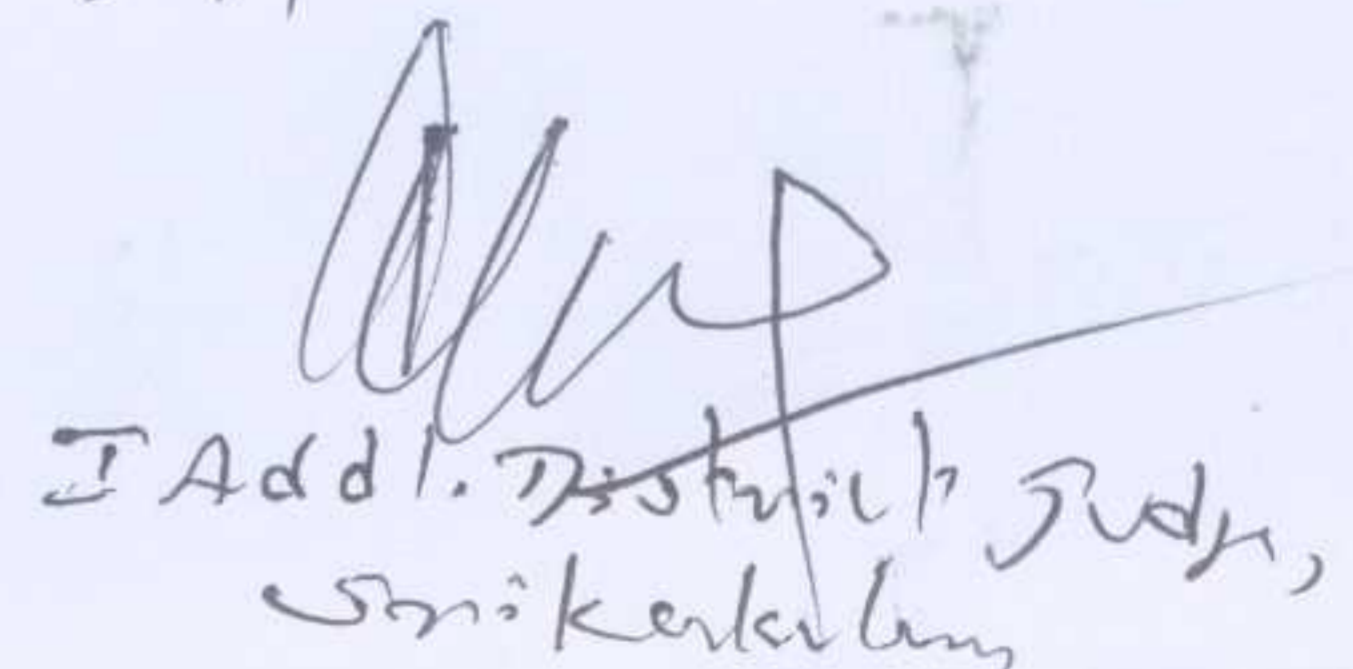 I Addl. District Judge,
Srikakulam